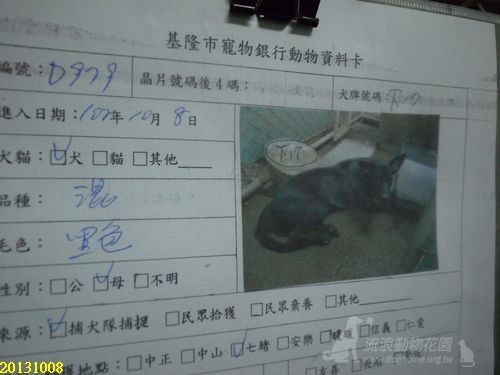 基隆市寵物銀行動物資料卡
編號：D979 晶片號碼後4碼： 犬牌號碼：下17
進入日期：102年10月8日
下17
犬貓：☑犬 □貓 □其他
品種： 混
毛色： 黑色
性別：□公 ☑母 □不明
來源：☑捕犬隊捕捉 □民眾拾獲 □民眾棄養 □其他
獲地點：□中正 □中山 ☑七堵 □安樂 □暖暖 □信義 □仁愛
流浪動物花園
www.doghome.org.tw
20131008